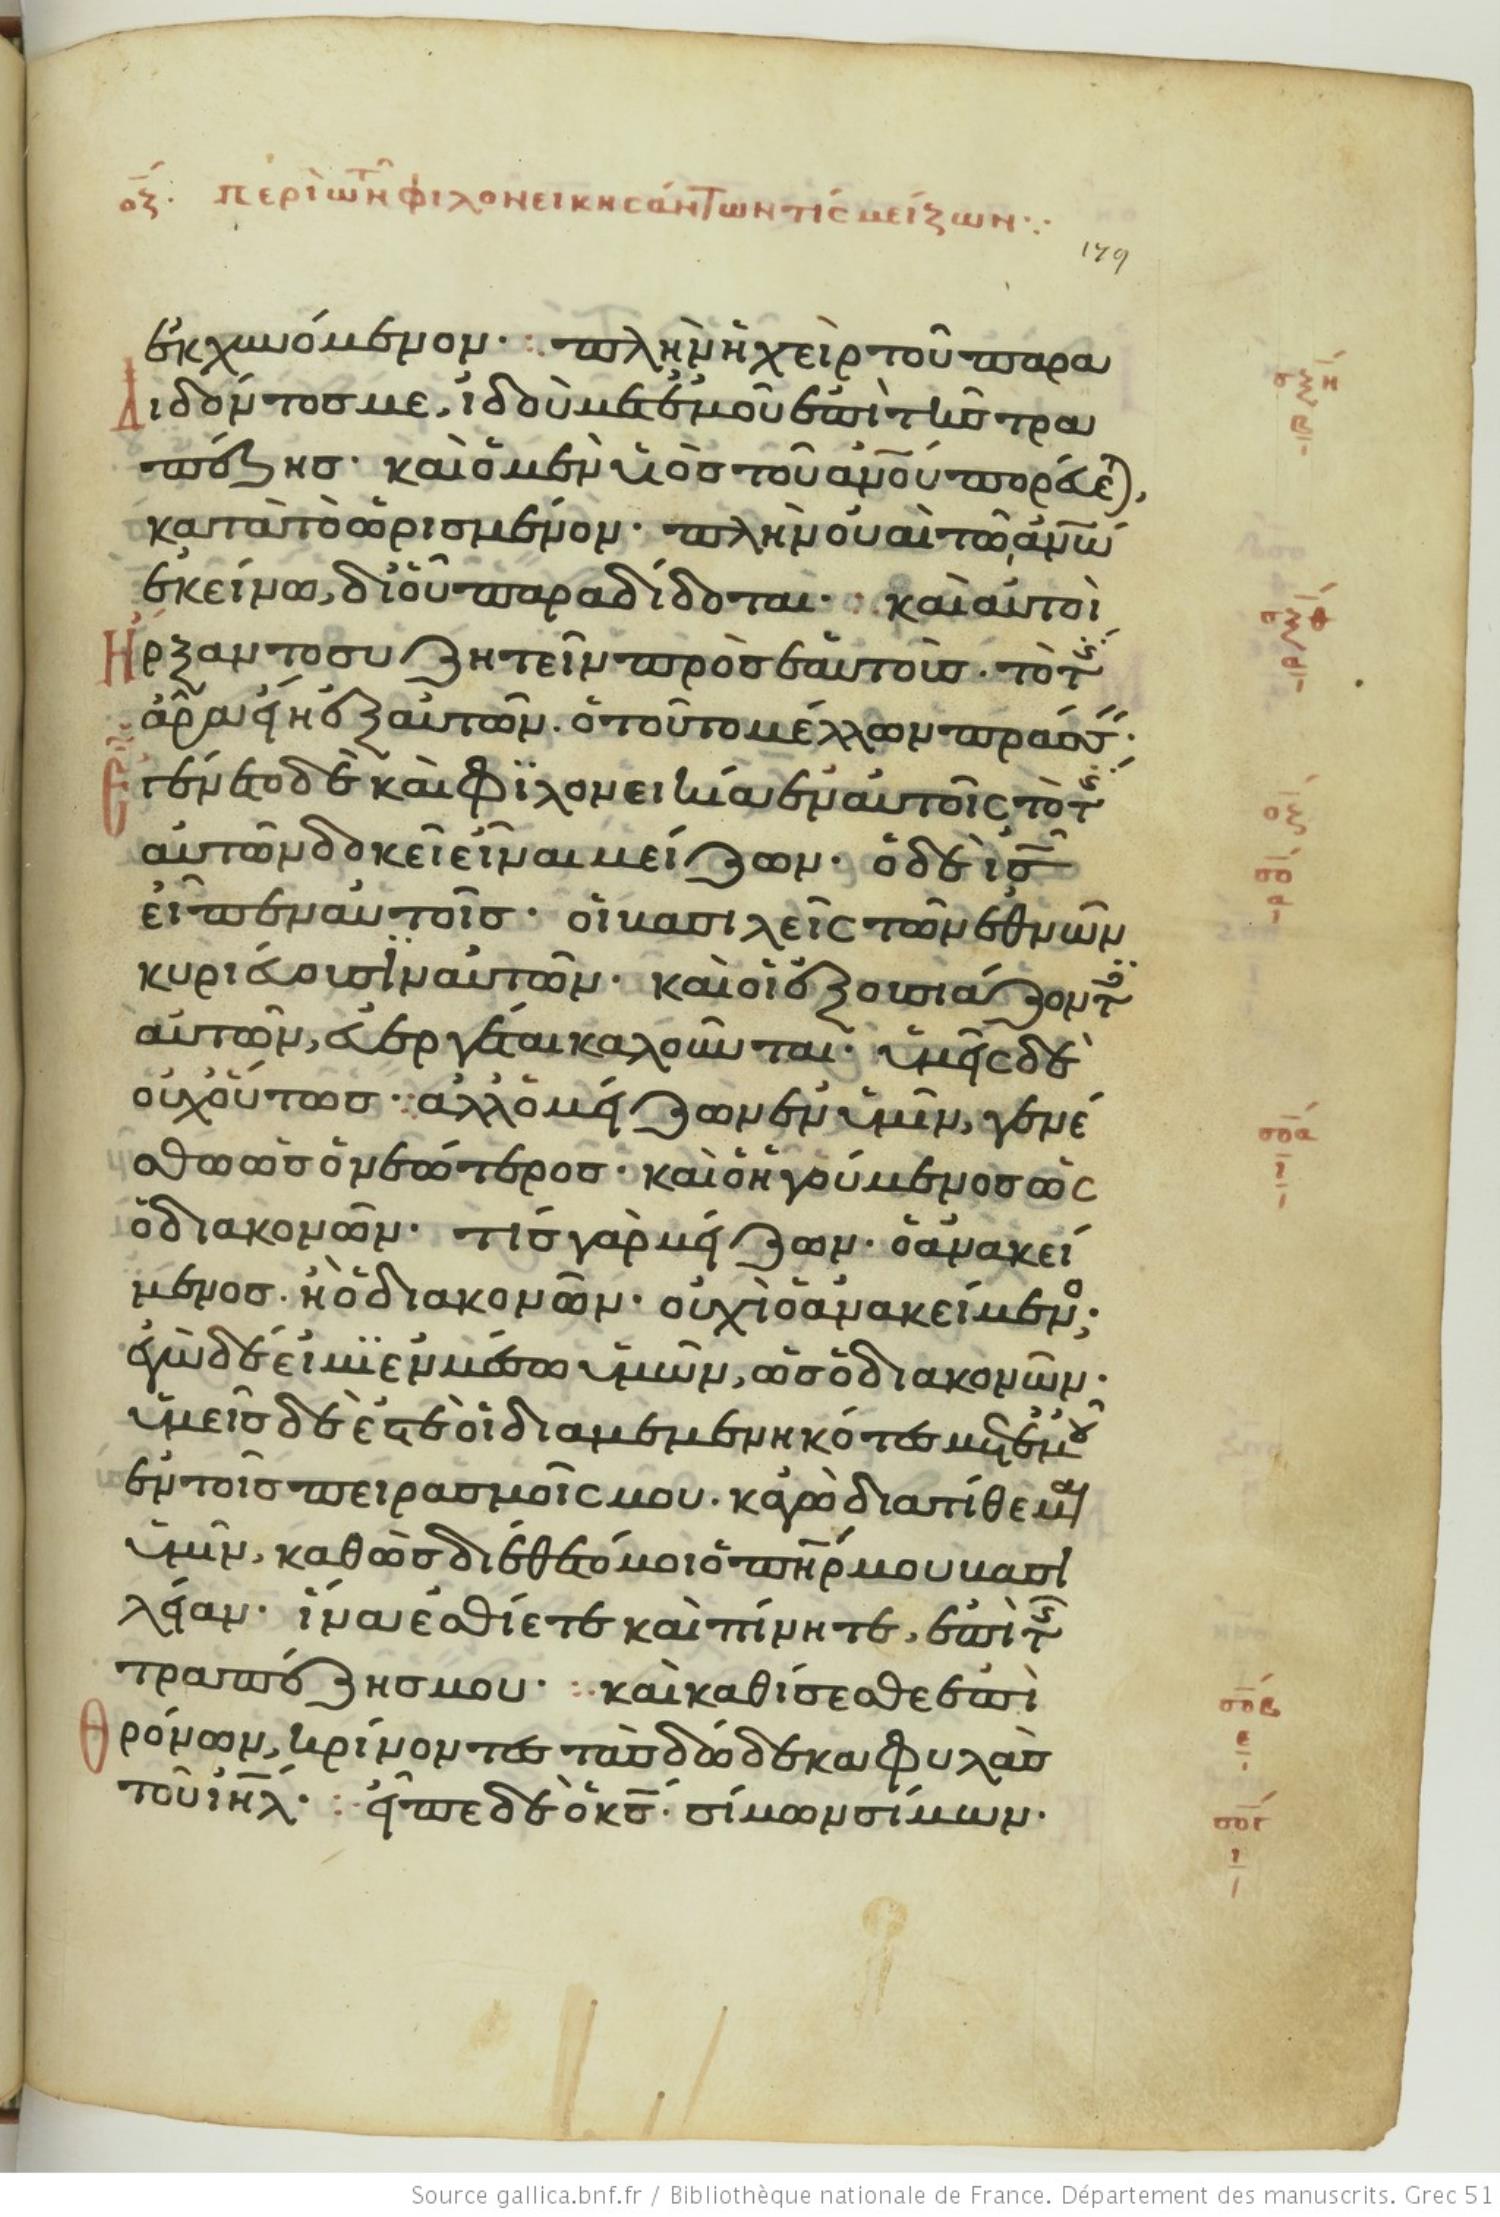 οζ· περὶ τῶν φιλονεικησάντων τίς μείζων ∴
179
ἐκχυνόμενον· πλὴν ἡ χεὶρ τοῦ παρα
διδόντοσ με, ἰδοὺ μετ' ἐμοῦ ἐπὶ τῆσ τρα
πέζησ· καὶ ὁ μὲν υἱὸσ τοῦ ἀνου πορεύε),
κατὰ τὸ ὡρισμένον· πλὴν οὐαὶ τῶ ἀνω
ἐκείνω, δι' οὗ παραδίδοται· καὶ αὐτοὶ
Ἤρξαντο συζητεῖν πρὸσ ἑαυτοὺσ. τὸ τίσ
ἄρα εἴη ἐξ αὐτῶν. ὁ τοῦτο μέλλων πράσσ·
Ἐγένετο δὲ καὶ φιλονεικία ἐν αὐτοῖς τὸ τίσ
αὐτῶν δοκεῖ εἶναι μείζων· ὁ δὲ ισ
εἶπεν αὐτοῖσ· οἱ βασιλεῖς τῶν ἐθνῶν
κυριεύουσιν αὐτῶν· καὶ οἱ ἐξουσιάζοντ
αὐτῶν, εὐεργέται καλοῦνται· ὑμεῖς δὲ
οὐχ οὕτωσ· ἀλλ' ὁ μείζων ἐν ὑμῖν, γενέ
σθω ὡσ ὁ νεώτεροσ· καὶ ὁ ἡγούμενοσ ὡς
ὁ διακονῶν· τίσ γὰρ μείζων· ὁ ἀνακεί
μενοσ. ἢ ὁ διακονῶν· οὐχὶ ὁ ἀνακείμενο;
ἐγὼ δέ εἰμϊ ἐν μέσω ὑμῶν, ὡσ ὁ διακονῶν·
ὑμεῖσ δὲ ἐστὲ οἱ διαμεμενηκότεσ μετ' ἐμοῦ
ἐν τοῖσ πειρασμοῖς μου. κἀγὼ διατίθεμαι
ὑμῖν, καθὼσ διέθετό μοι ὁ πηρ μου βασι
λείαν· ἵνα ἐσθίετε καὶ πίνητε, ἐπὶ τῆσ
τραπέζησ μου· καὶ καθίσεσθε ἐπὶ
Θρόνων, κρίνοντεσ τὰσ δώδεκα φυλὰσ
τοῦ ιηλ· εἶπε δὲ ὁ κσ· σίμων σίμων·
σξη
β
σξθ
οξ
σο
σοα
ι
σοβ
ε
σογ
ι
Source gallica.bnf.fr / Bibliothèque nationale de France. Département des manuscrits. Grec 51